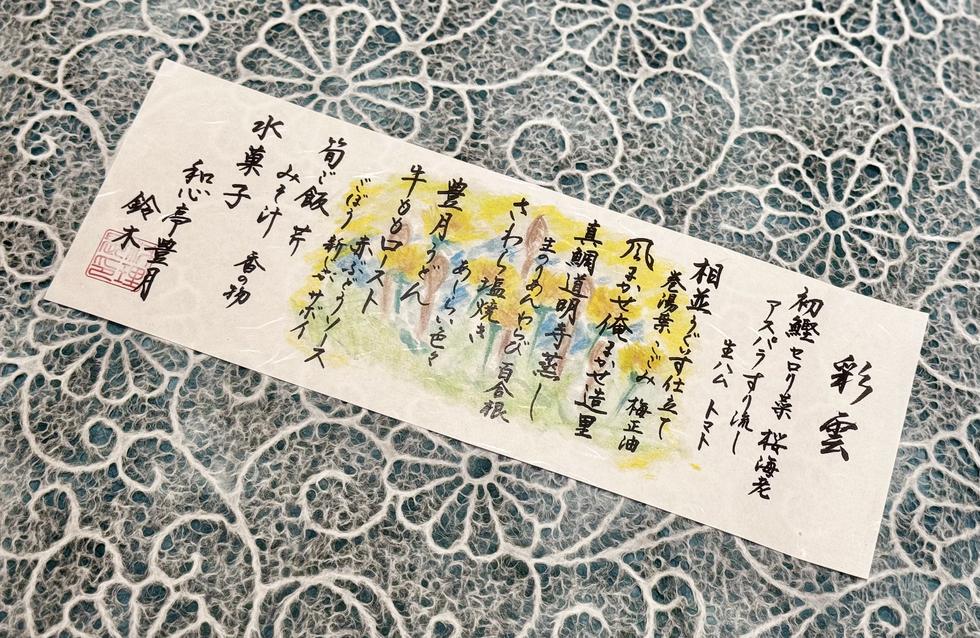 彩雲
初鰹 セロリ菜 桜海老
アスパラすり流し
生ハム トマト
相並うぐいす仕立て
巻湯葉 こごみ 梅正油
風まかせ俺まかせ造里
真鯛道明寺蒸し
生のりあん わらび 百合根
さわら塩焼き
あしらい色々
豊月うどん
牛ももロースト
赤ぶどうソース
ごぼう 新じゃが サボイ
筍ご飯 芹
みそ汁 香の物
水菓子
和心亭豊月
鈴木